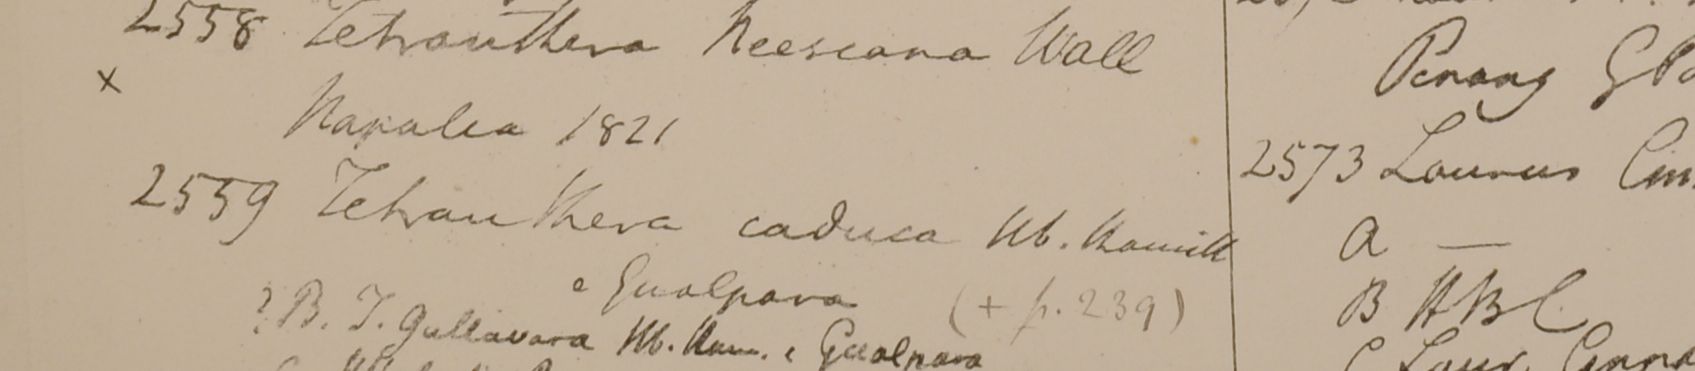 2558 Tetranthera Neeseana Wall
x
Napalia 1821
2559 Tetranthera caduca Hb. Hamilt
e Gualpara (+ p. 239)
? B. T. gullavara Hb. Ham. e Gualpara
Penang GP
2573 Laurus Cin
a —
B HBC
C Laur. Cinna